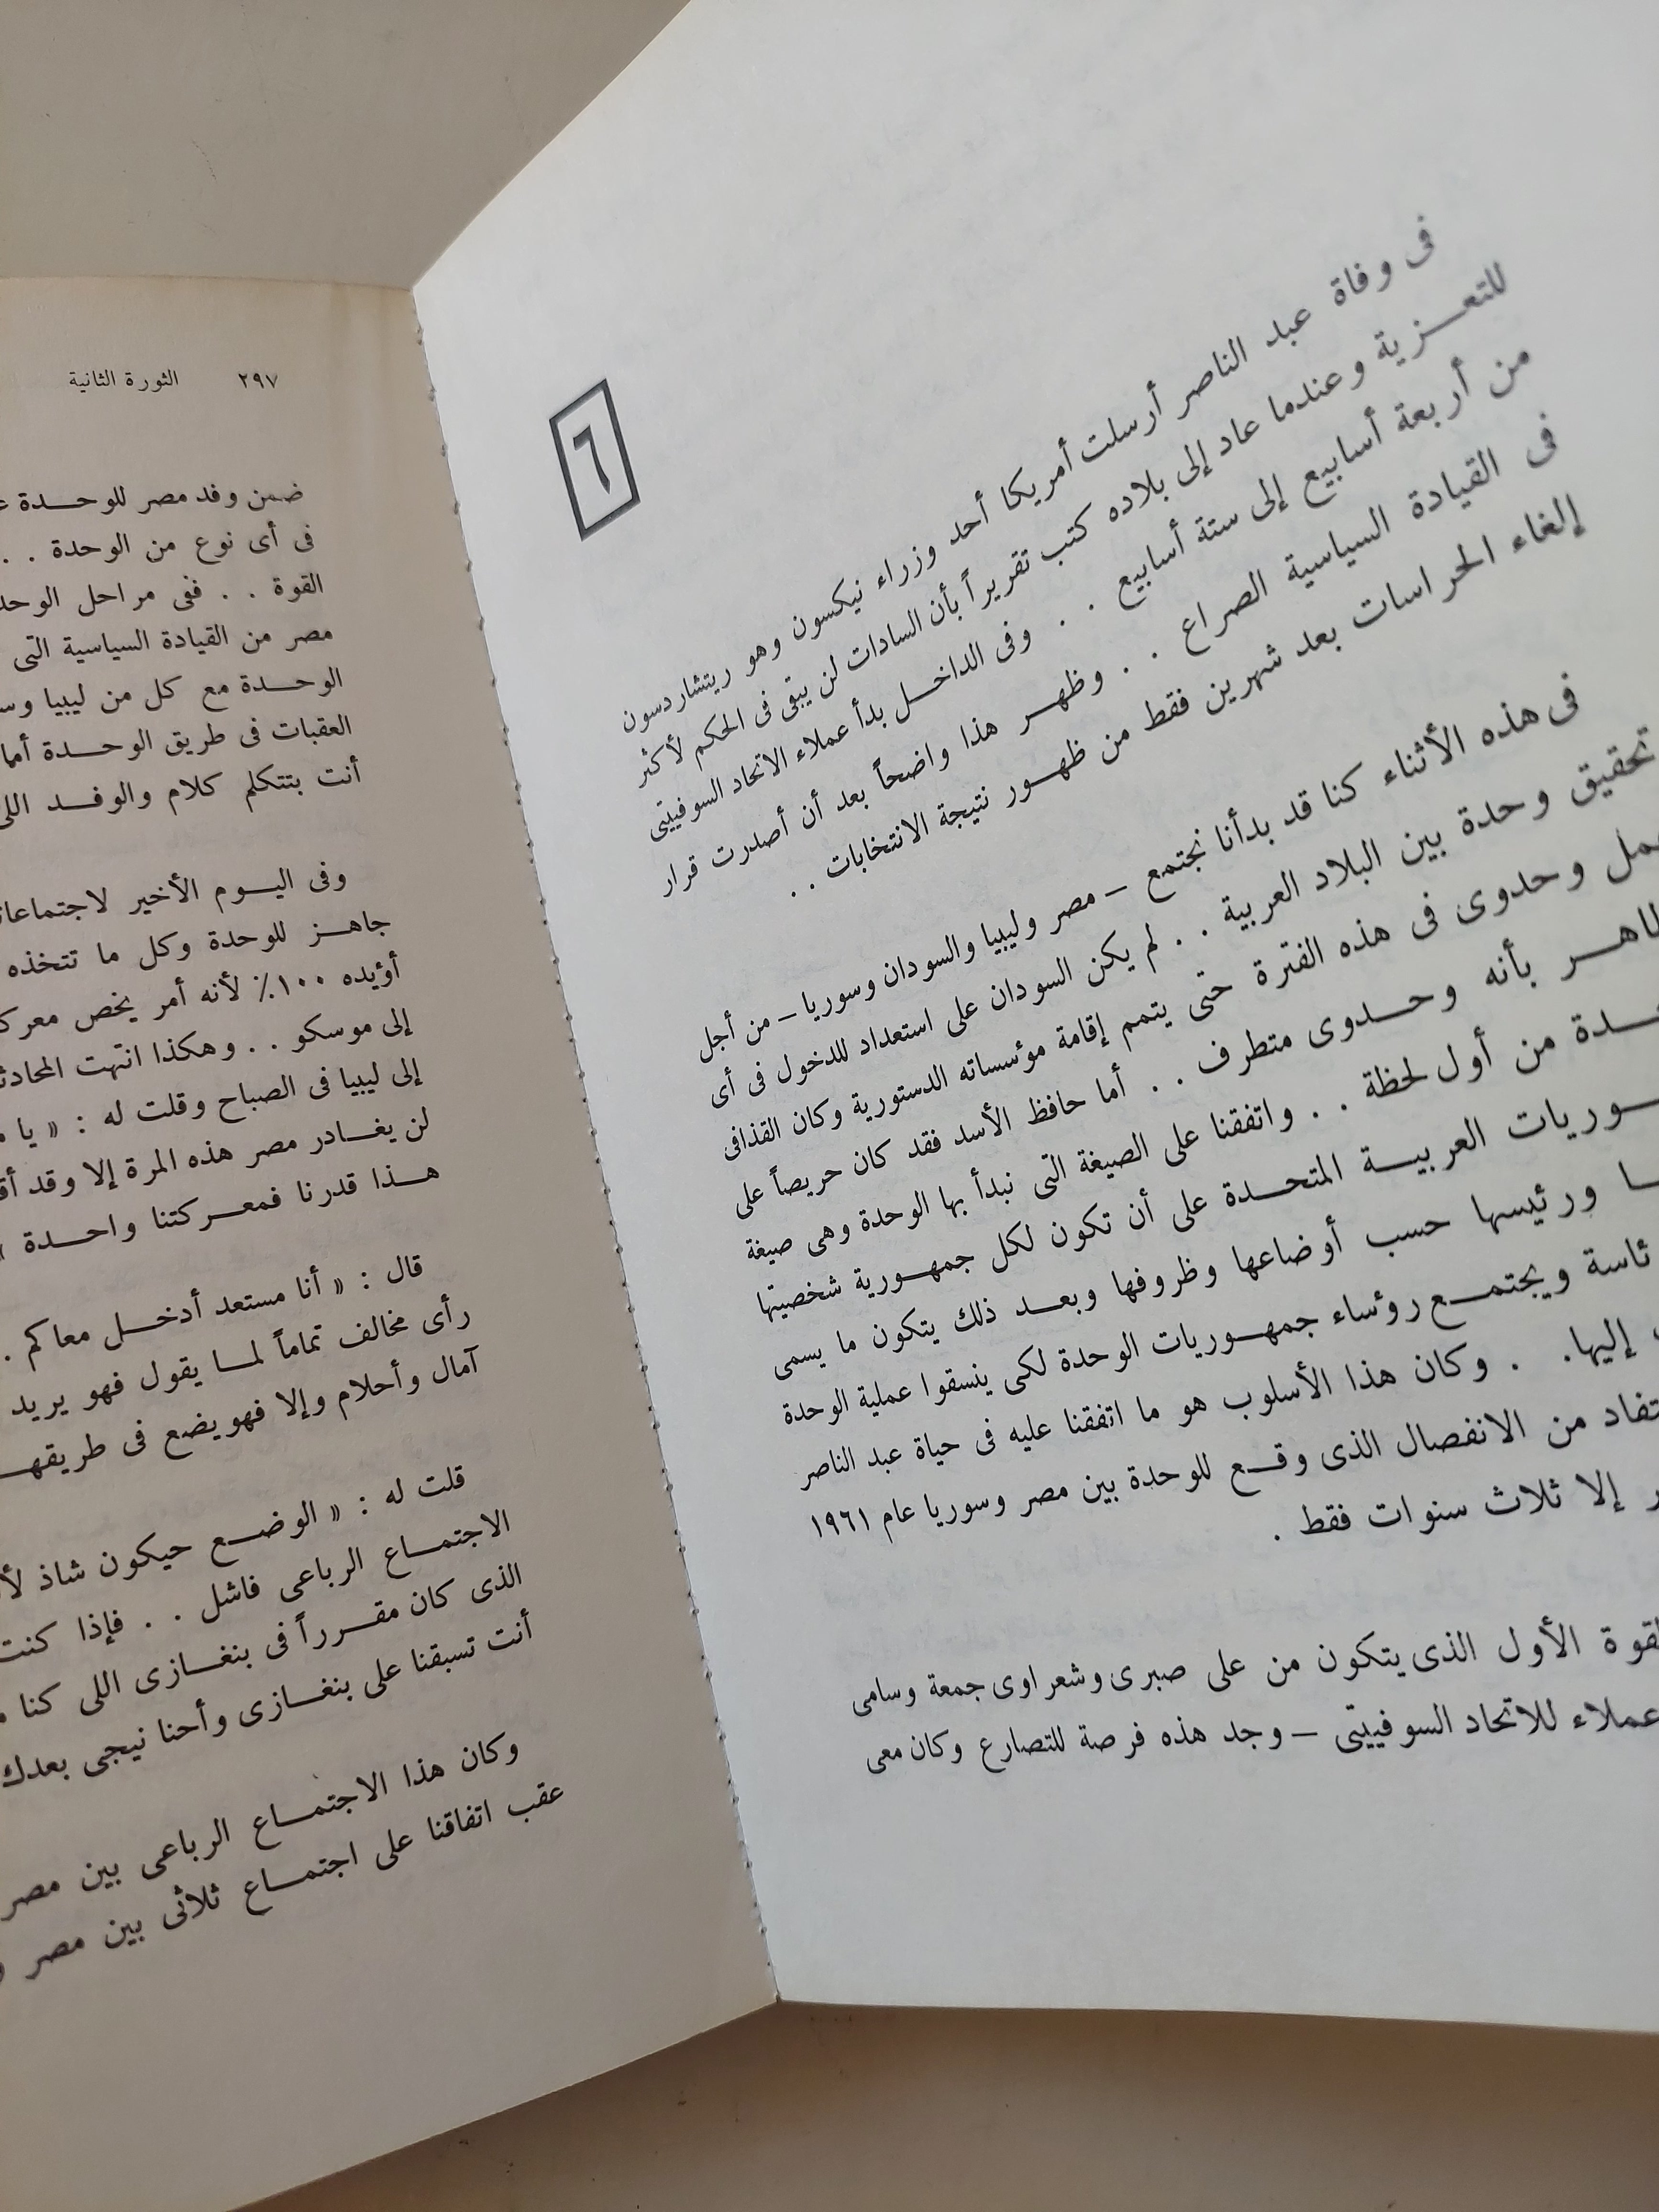 ٦
فى وفاة عبد الناصر أرسلت أمريكا أحد وزراء نيكسون وهو ريتشاردسون
للتعــزية وعندما عاد إلى بلاده كتب تقريراً بأن السادات لن يبقى فى الحكم لأكثر
من أربعة أسابيع إلى ستة أسابيع . . وفى الداخـل بدأ عملاء الاتحاد السوفييتى
فى القيادة السياسية الصراع . . وظهـر هذا واضحاً بعد أن أصدرت قرار
إلغاء الحراسات بعد شهرين فقط من ظهـور نتيجة الانتخابات . .
فى هذه الأثناء كنا قد بدأنا نجتمع – مصر وليبيا والسودان وسوريا – من أجل
تحقيق وحدة بين البلاد العربية . . لم يكن السودان على استعداد للدخول فى أى
وحدوى فى هذه الفترة حتى يتمم إقامة مؤسساته الدستورية وكان القذافى
بأنه وحـدوى متطرف . . أما حافظ الأسد فقد كان حريصاً على
من أول لحظة . . واتفقنا على الصيغة التى نبدأ بها الوحدة وهى صيغة
العربيـة المتحـدة على أن تكون لكل جمهـورية شخصيتها
ورئيسها حسب أوضاعها وظروفها وبعـد ذلك يتكون ما يسمى
ويجتمـع رؤساء جمهـوريات الوحدة لكى ينسقوا عملية الوحدة
إليها. . وكان هذا الأسلوب هو ما اتفقنا عليه فى حياة عبد الناصر
من الانفصال الذى وقـع للوحدة بين مصر وسوريا عام ١٩٦١
إلا ثلاث سنوات فقط .
الأول الذى يتكون من على صبرى وشعراوى جمعة وسامى
عملاء للاتحاد السوفييتى – وجد هذه فرصة للتصارع وكان معى
٢٩٧ الثورة الثانية
ضمن وفد مصر للوحـدة
فى أى نوع من الوحدة . .
القوة . . ففى مراحل
مصر من القيادة السياسية التى
الوحـدة مع كل من ليبيا
العقبات فى طريق الوحـدة
أنت بتتكلم كلام والوفـد
وفى اليـوم الأخير
جاهـز للوحدة وكل ما تتخذه
أؤيده ١٠٠٪ لأنه أمر يخص
إلى موسكو . . وهكذا انتهت
إلى ليبيا فى الصباح وقلت له : « يا
لن يغـادر مصر هذه المرة إلا وقد
هـذا قدرنا فمعـركتنا واحـدة
قال : « أنا مستعد أدخـل معاكم .
رأى مخالف تماماً لمـا يقول فهو يريد
آمال وأحلام وإلا فهو يضع فى
قلت له : « الوضـع حيكون شاذ
الاجتمـاع الرباعى فاشل . . فإذا كنت
الذى كان مقـرراً فى بنغـازى اللى كنا
أنت تسبقنا على بنغـازى وأحنا نيجى بعدك
وكان هذا الاجتمـاع الرباعى بين مصر
عقب اتفاقنا على اجتمـاع ثلاثى بين مصر